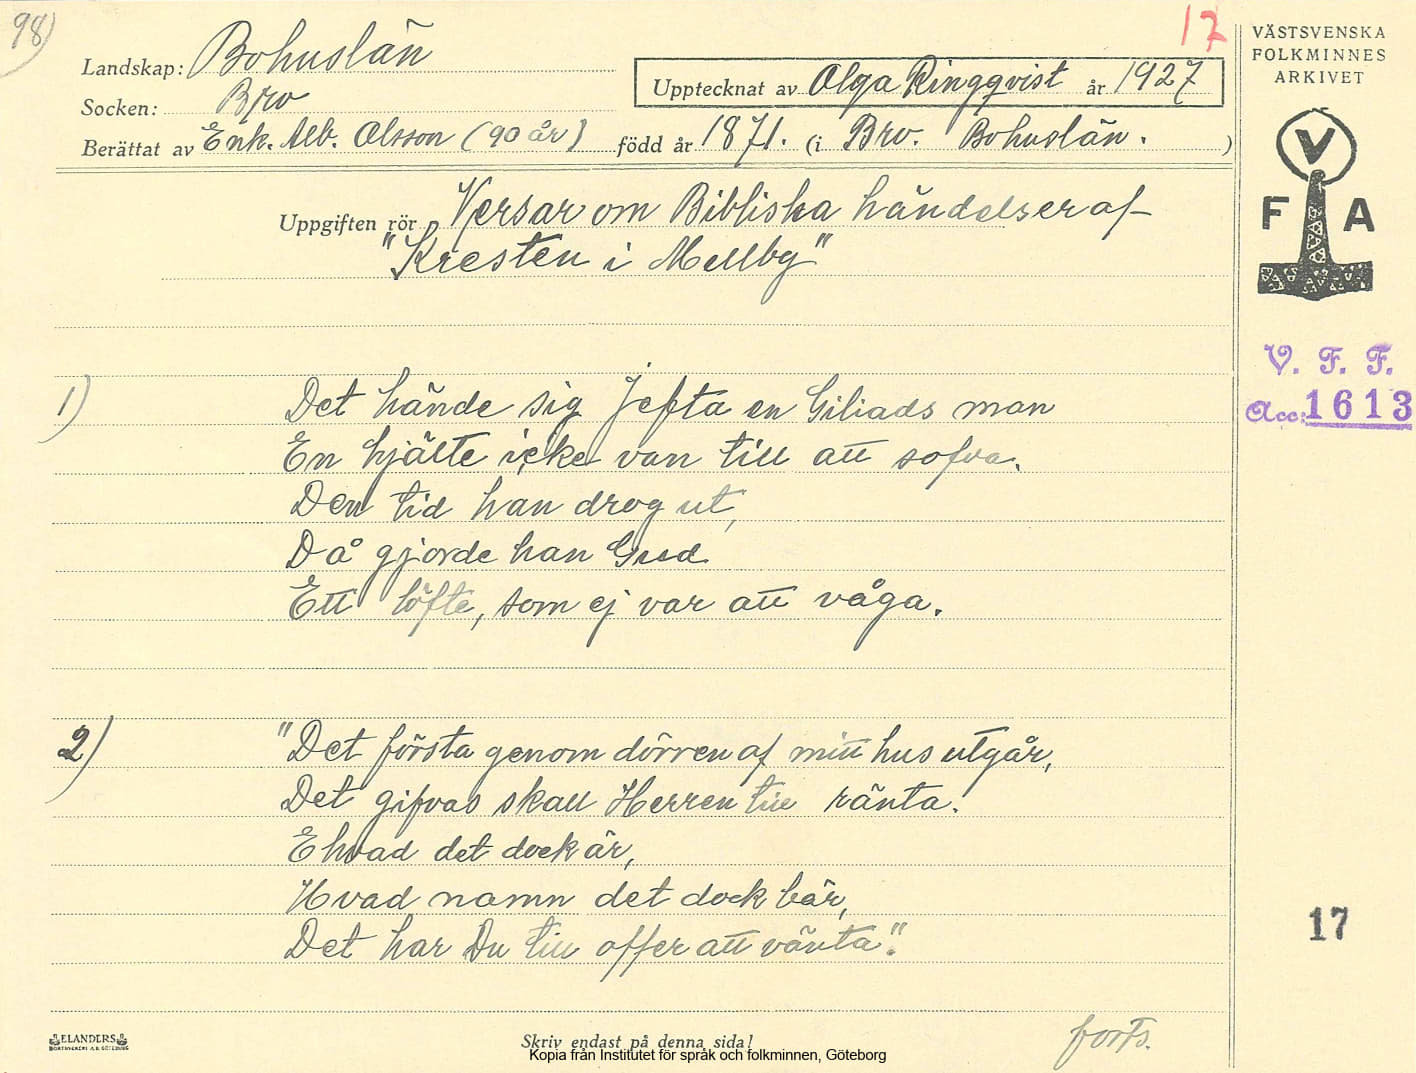 98)
17
Landskap: Bohuslän
Upptecknat av Olga Ringqvist år 1927
Socken: Bro
Berättat av Enk. Alb. Olsson (90 år) född år 1871. (i Bro. Bohuslän. )
Uppgiften rör Versar om Bibliska händelser af
"Kresten i Mellby"
1) Det hände sig Jefta en Giliads man
En hjälte icke van till att sofva.
Den tid han drog ut,
Då gjorde han Gud
Ett löfte, som ej var att våga.
2) "Det första genom dörren af mitt hus utgår,
Det gifvas skall Herren till ränta.
Ehvad det dock är,
Hvad namn det dock bär,
Det har Du till offer att vänta".
forts.
ELANDERS
BOKTRYCKERI A.B. GÖTEBORG
Skriv endast på denna sida!
Kopia från Institutet för språk och folkminnen, Göteborg
VÄSTSVENSKA
FOLKMINNES
ARKIVET
V
F A
V. F. F.
Acc: 1613
17